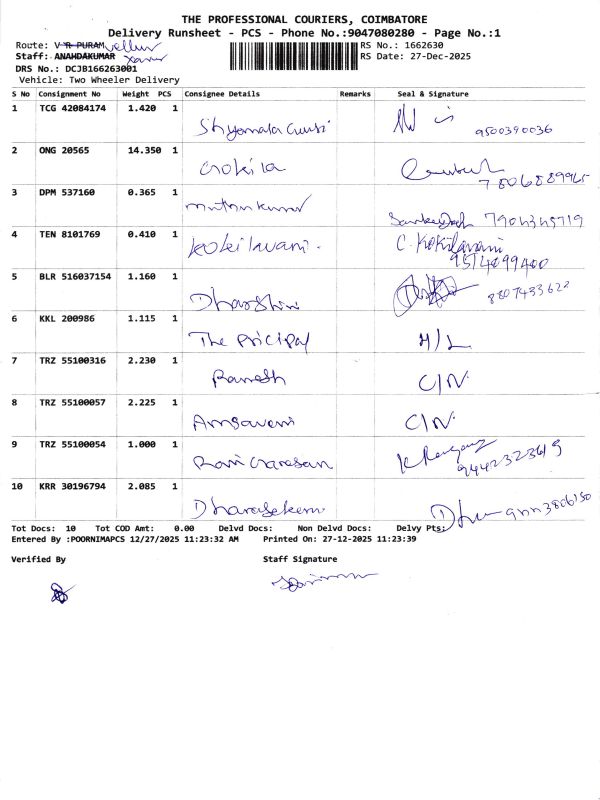 THE PROFESSIONAL COURIERS, COIMBATORE
Delivery Runsheet - PCS - Phone No.:9047080280 - Page No.:1
Route: V R PURAM vellur RS No.: 1662630
Staff: ANANDAKUMAR RS Date: 27-Dec-2025
DRS No.: DCJB166263001
Vehicle: Two Wheeler Delivery
S No Consignment No Weight PCS Consignee Details Remarks Seal & Signature
1 TCG 42084174 1.420 1
9500390036
2 ONG 20565 14.350 1 Gokila
7806889965
3 DPM 537160 0.365 1 muthukumar
7904345719
4 TEN 8101769 0.410 1 Kokilavani. C. Kokilavani
9514099400
5 BLR 516037154 1.160 1 Dharshini
8807433622
6 KKL 200986 1.115 1 The pricipal M/L
7 TRZ 55100316 2.230 1 Ramesh C/N.
8 TRZ 55100057 2.225 1 Amsaveni C/N.
9 TRZ 55100054 1.000 1
9442323619
10 KRR 30196794 2.085 1
Tot Docs: 10 Tot COD Amt: 0.00 Delvd Docs: Non Delvd Docs: Delvy Pts:
Entered By :POORNIMAPCS 12/27/2025 11:23:32 AM Printed On: 27-12-2025 11:23:39
Verified By Staff Signature